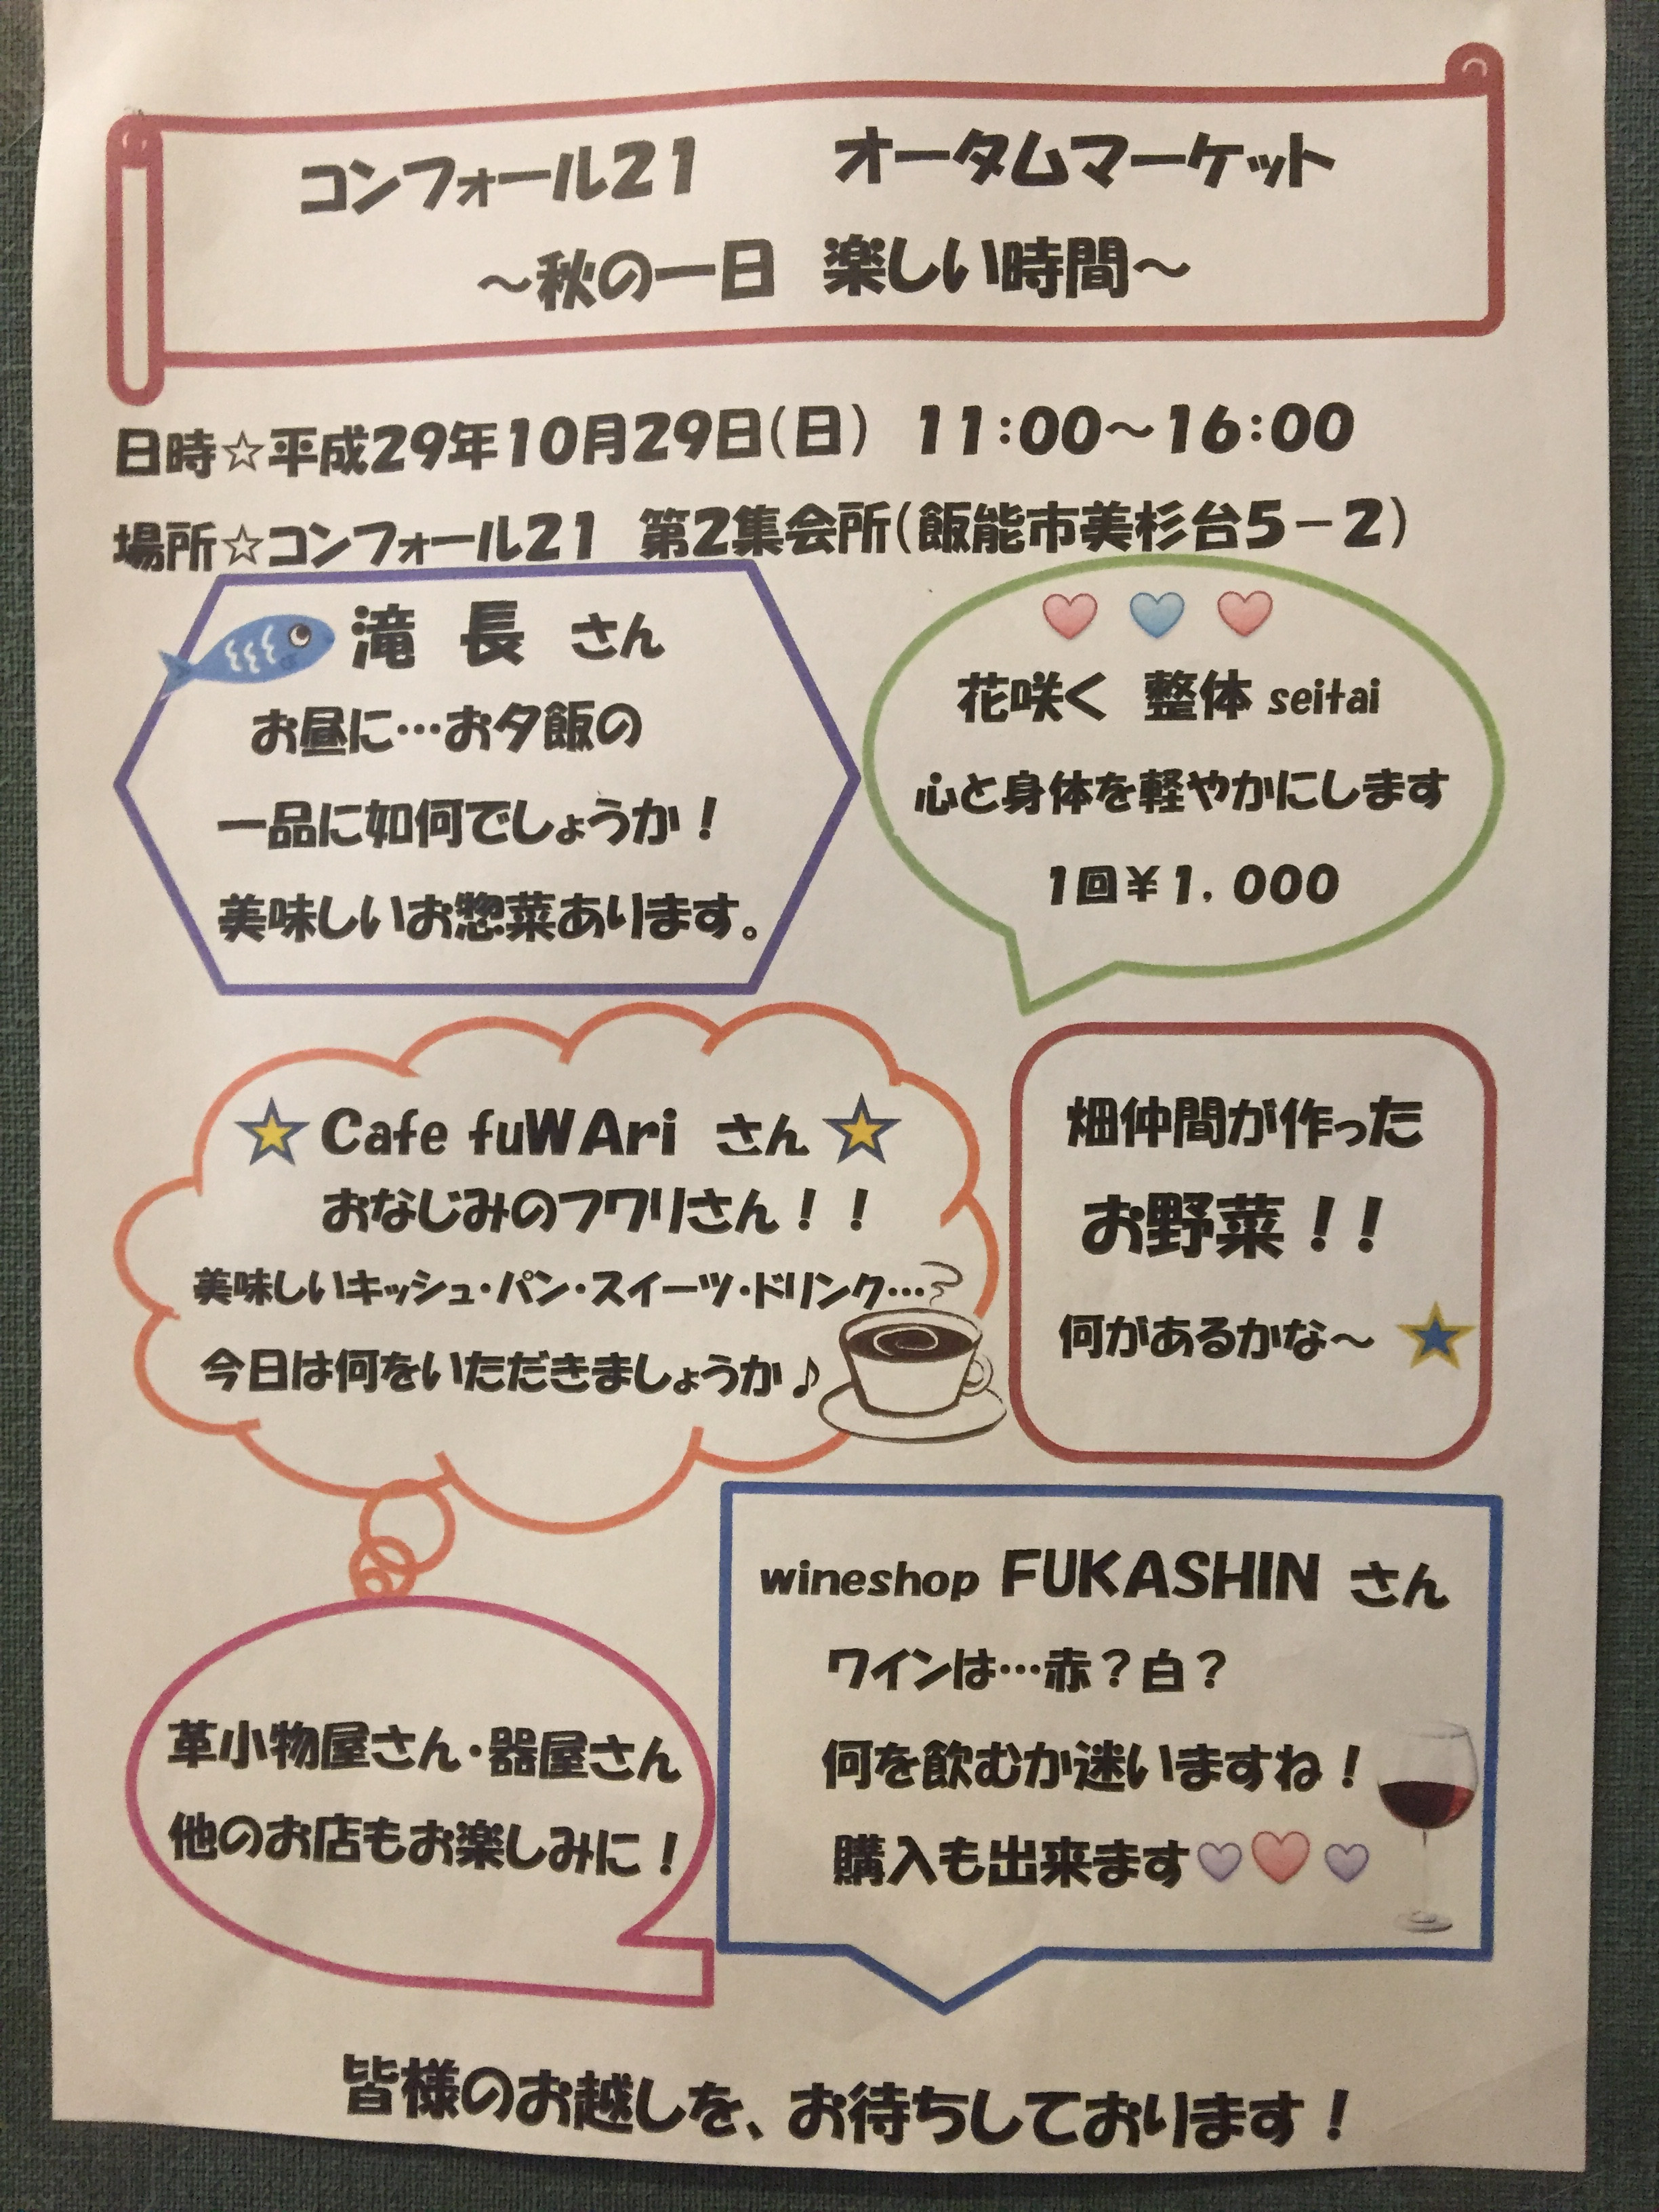 コンフォール21　オータムマーケット
～秋の一日　楽しい時間～
日時☆平成29年10月29日(日)　11:00～16:00
場所☆コンフォール21　第2集会所(飯能市美杉台5－2)
滝　長　さん
お昼に…お夕飯の
一品に如何でしょうか！
美味しいお惣菜あります。
花咲く　整体 seitai
心と身体を軽やかにします
1回￥1，000
☆Cafe fuWAri　さん☆
おなじみのフワリさん！！
美味しいキッシュ・パン・スイーツ・ドリンク…
今日は何をいただきましょうか♪
畑仲間が作った
お野菜！！
何があるかな～
wineshop FUKASHIN さん
ワインは…赤？白？
何を飲むか迷いますね！
購入も出来ます
革小物屋さん・器屋さん
他のお店もお楽しみに！
皆様のお越しを、お待ちしております！